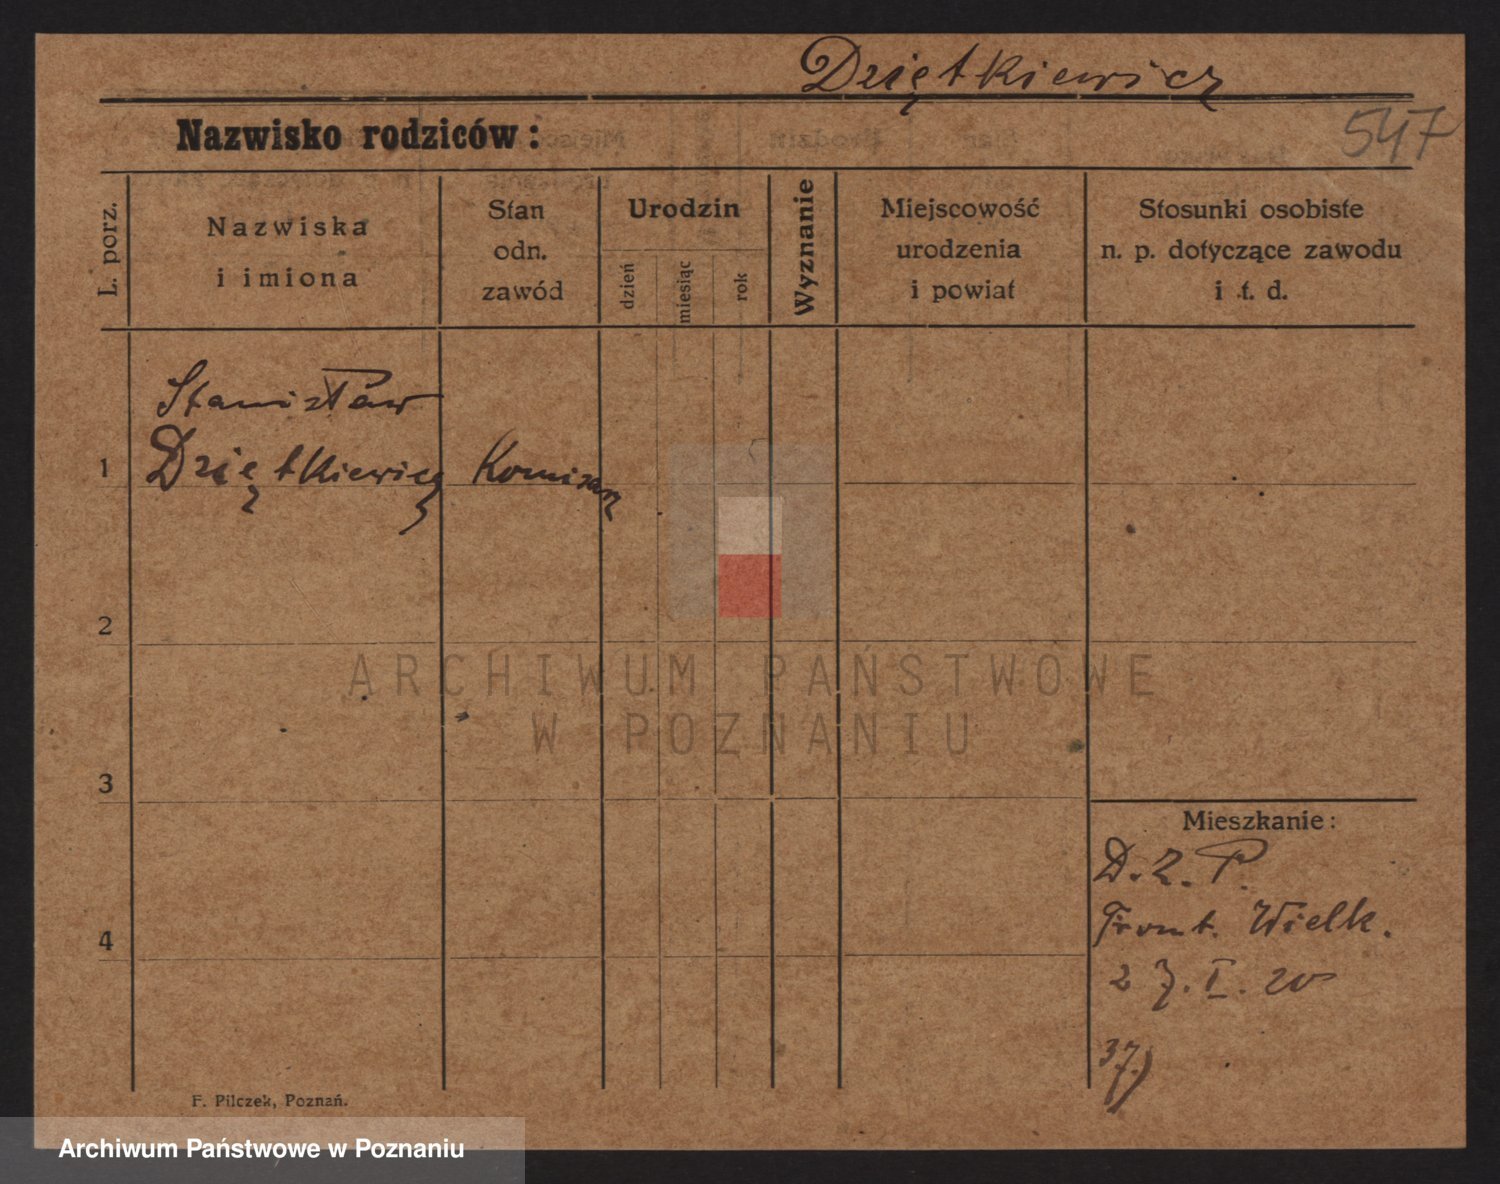 Dziętkiewicz
547
Nazwisko rodziców:
L. porz.
Nazwiska
i imiona
Stan
odn.
zawód
Urodzin
dzień
miesiąc
rok
Wyznanie
Miejscowość
urodzenia
i powiat
Stosunki osobiste
n. p. dotyczące zawodu
i t. d.
Stanisław
1 Dziętkiewicz Komisarz
2
ARCHIWUM PAŃSTWOWE
W POZNANIU
3
Mieszkanie:
D. Z. P.
Front. Wielk.
27. I. 20
37)
4
F. Pilczek, Poznań.
Archiwum Państwowe w Poznaniu